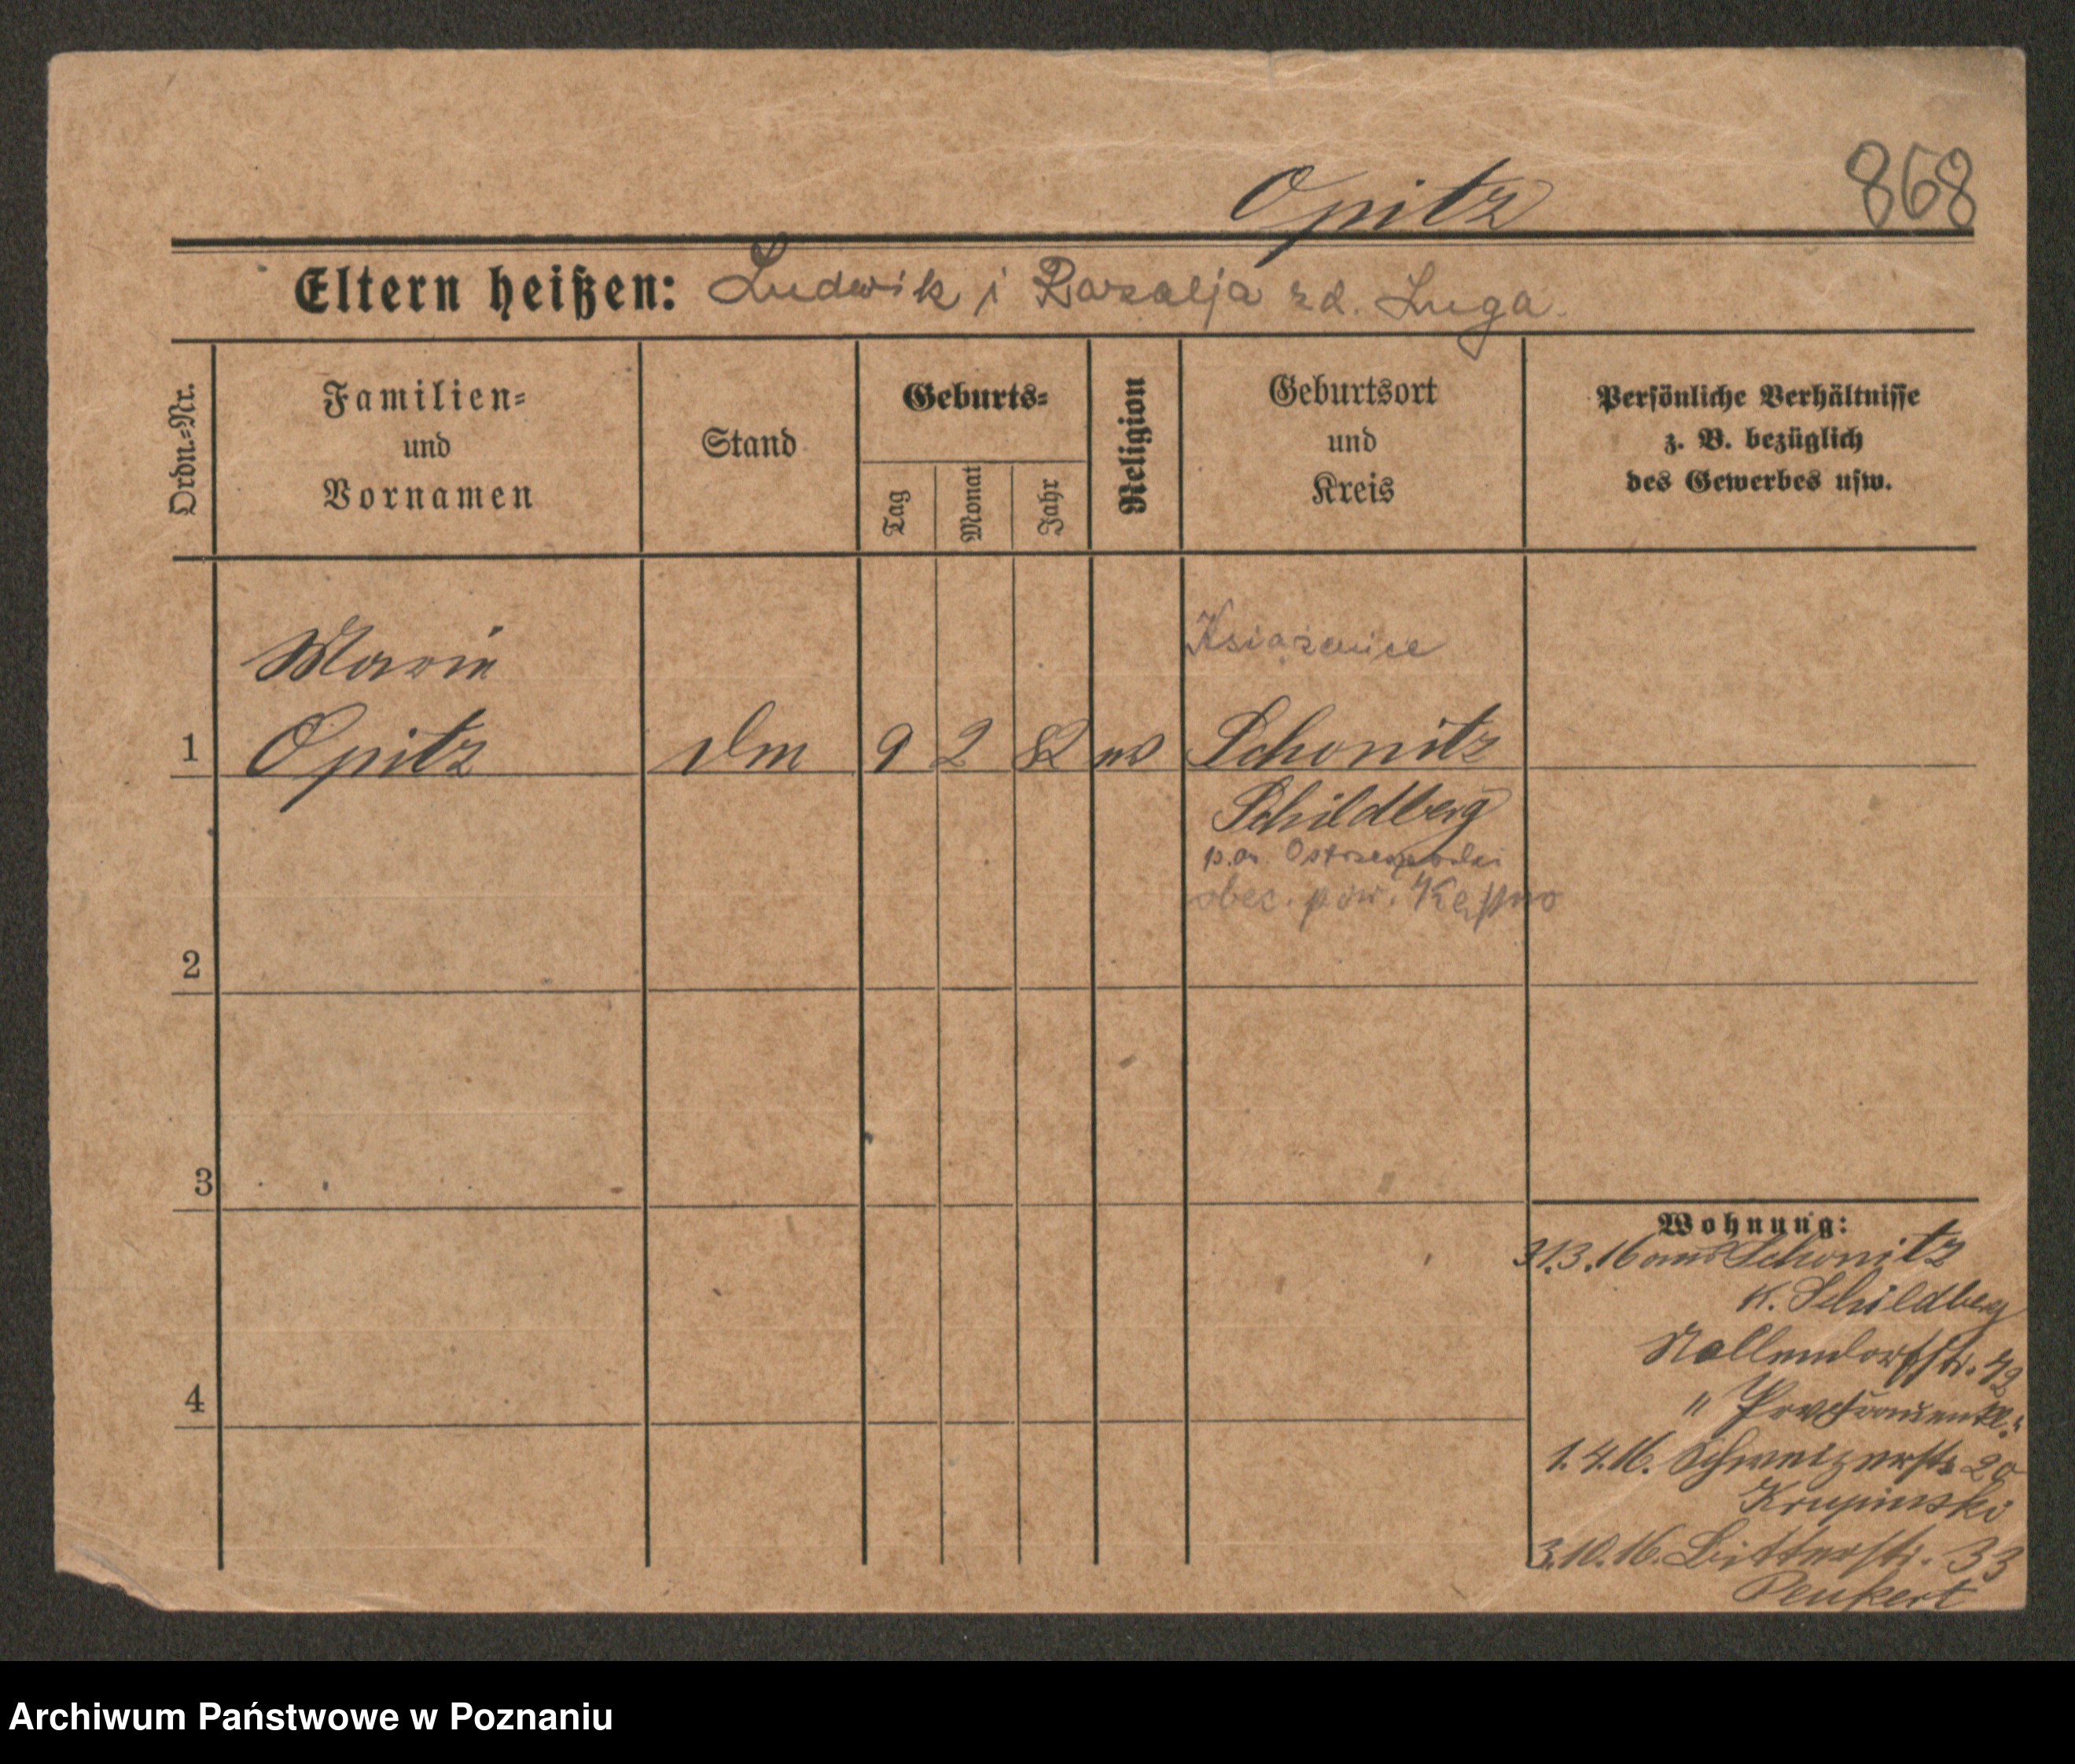 Opitz
868
Eltern heißen: Ludwik i Rozalja zd. Luga.
Ordn.=Nr.
Familien=
und
Vornamen
Stand
Geburts=
Tag
Monat
Jahr
Religion
Geburtsort
und
Kreis
Persönliche Verhältnisse
z. B. bezüglich
des Gewerbes usw.
Marie
Książenice
1 Opitz Dm 9 2 82 Schonitz
Schildberg
Ostrzeszowski
obec. pow. Kępno
2
3
4
Wohnung:
31.3.16 aus Schonitz
K. Schildberg
Nollendorfstr. 42
"
1.4.16. Schweizerstr 20
Krupinski
3.10.16. Bitterstr. 33
Penkert
Archiwum Państwowe w Poznaniu